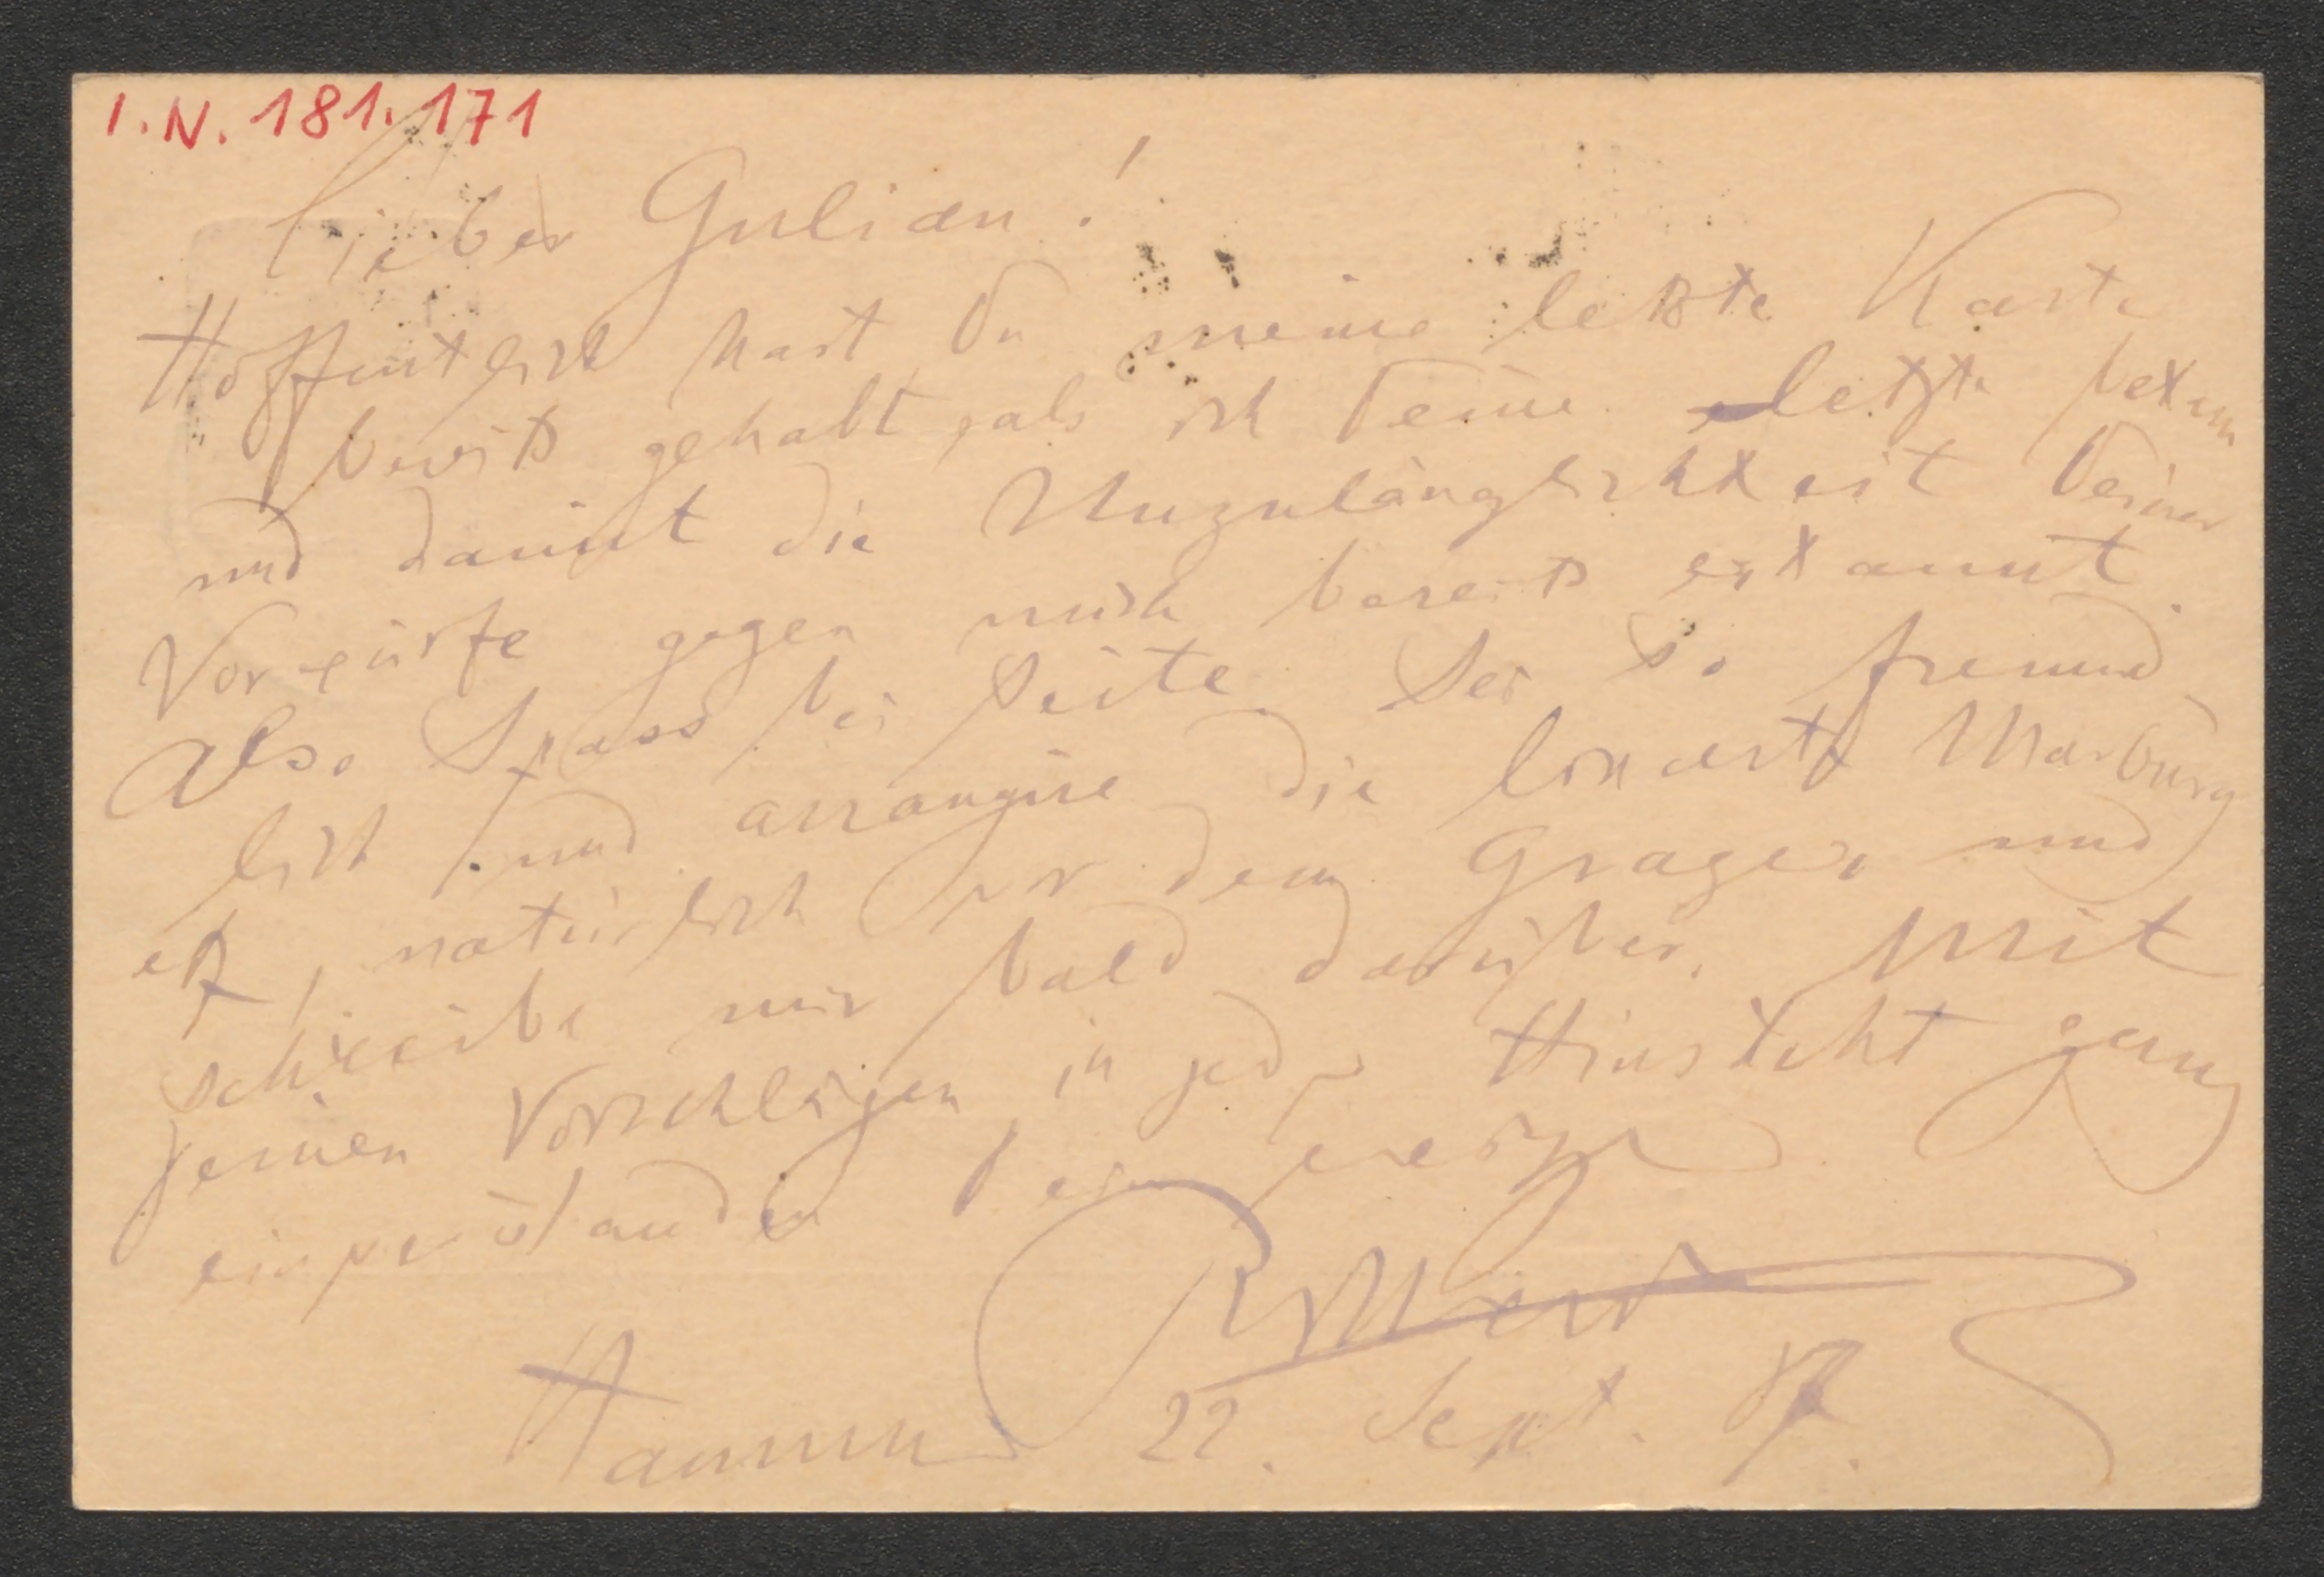 I.N. 181.171
Lieber Gulian!
Hoffentlich hast Du meine letzte Karte
bereits gehabt, als ich Deine letzte bekam
und damit die Unzulänglichkeit Deiner
Vorwürfe gegen mich bereits erkannt.
Also Spass bei Seite. Sei so freund
lich und arrangire die Concerte Marburg
etz, natürlich vor dem Grazer und
schreibe mir bald darüber. Mit
Deinen Vorschlägen in jeder Hinsicht ganz
einverstanden
Hannover 22. Sept. 87.